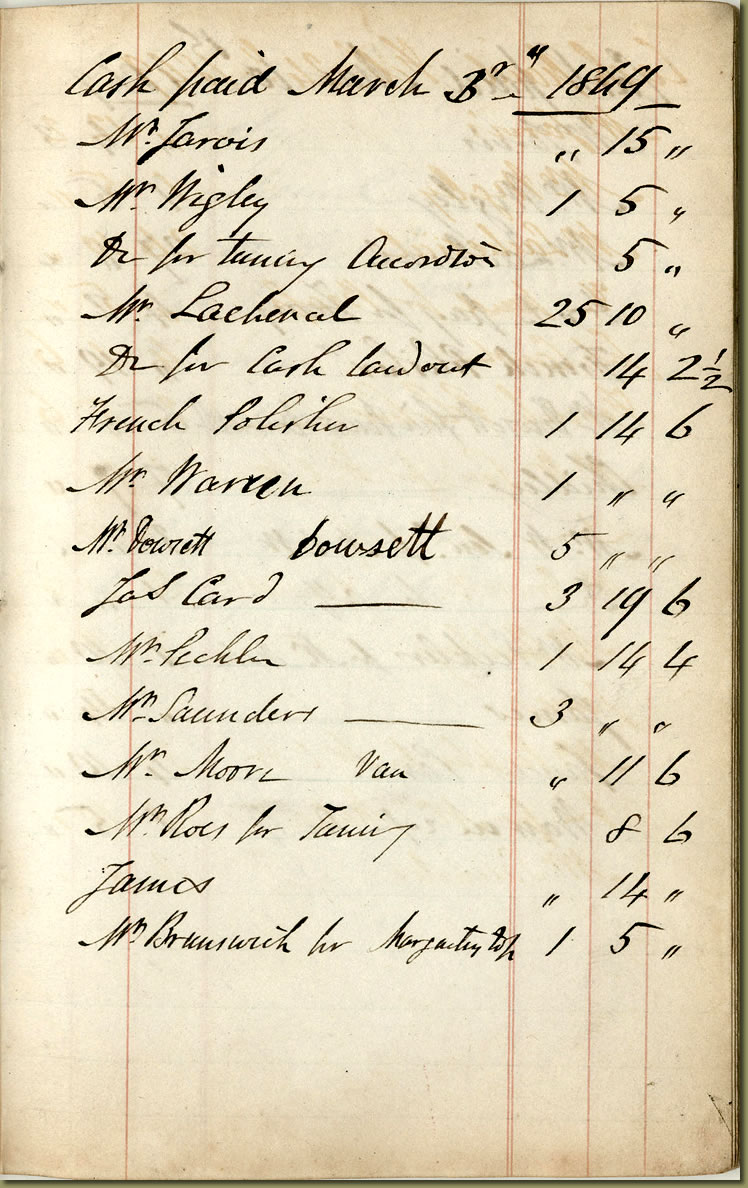 Cash paid March 3rd " 1849
Mr. Jarvis " 15 "
Mr. Wigley 1 5 "
Do for tuning Accordion 5 "
Mr. Lachenal 25 10 "
Do for Cash laid out 14 2½
French Polisher 1 14 6
Mr. Warren 1 " "
Mr. Dowsett Dowsett 5 " "
Jos Card — 3 19 6
Mr. 1 14 4
Mr. Saunders — 3 " "
Mr. Moore Van " 11 6
Mr. Roes for Tuning 8 6
James " 14 "
Mr. Brunswick for top 1 5 "